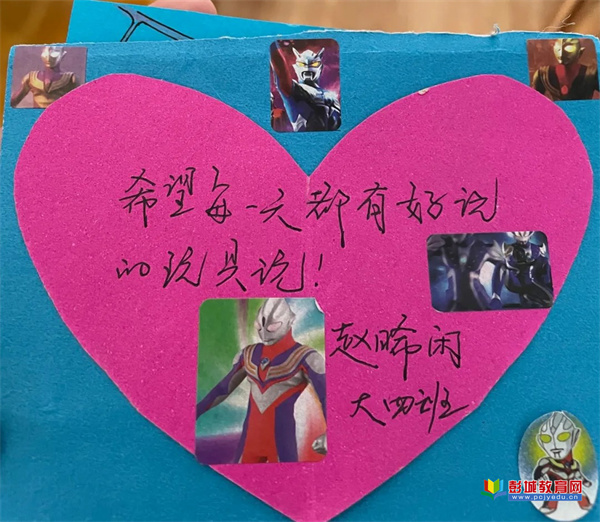 希望每一天都有好玩
的玩具玩!
赵晞闲
大四班
彭城教育网
www.pcjyedu.cn